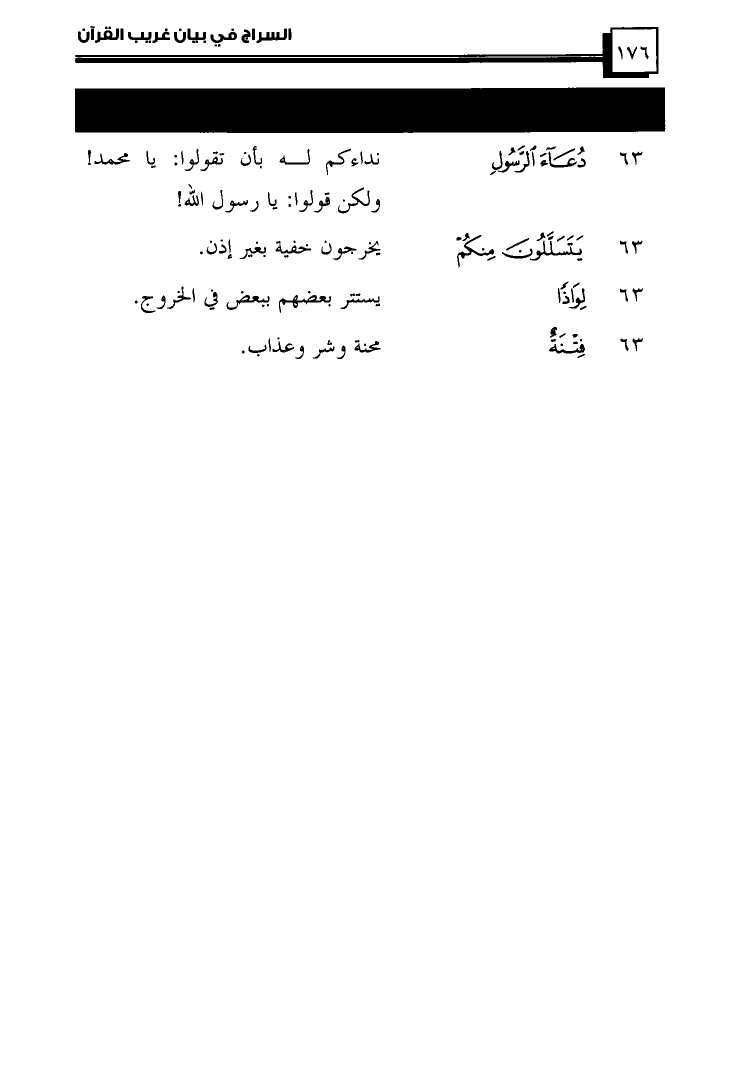 السراج في بيان غريب القرآن
١٧٦
٦٣ دُعَآءَ ٱلرَّسُولِ نداءكم لـــه بأن تقولوا: يا محمد!
ولكن قولوا: يا رسول الله!
٦٣ يَتَسَلَّلُونَ مِنكُمْ يخرجون خفية بغير إذن.
٦٣ لِوَاذًا يستتر بعضهم ببعض في الخروج.
٦٣ فِتْنَةٌ محنة وشر وعذاب.